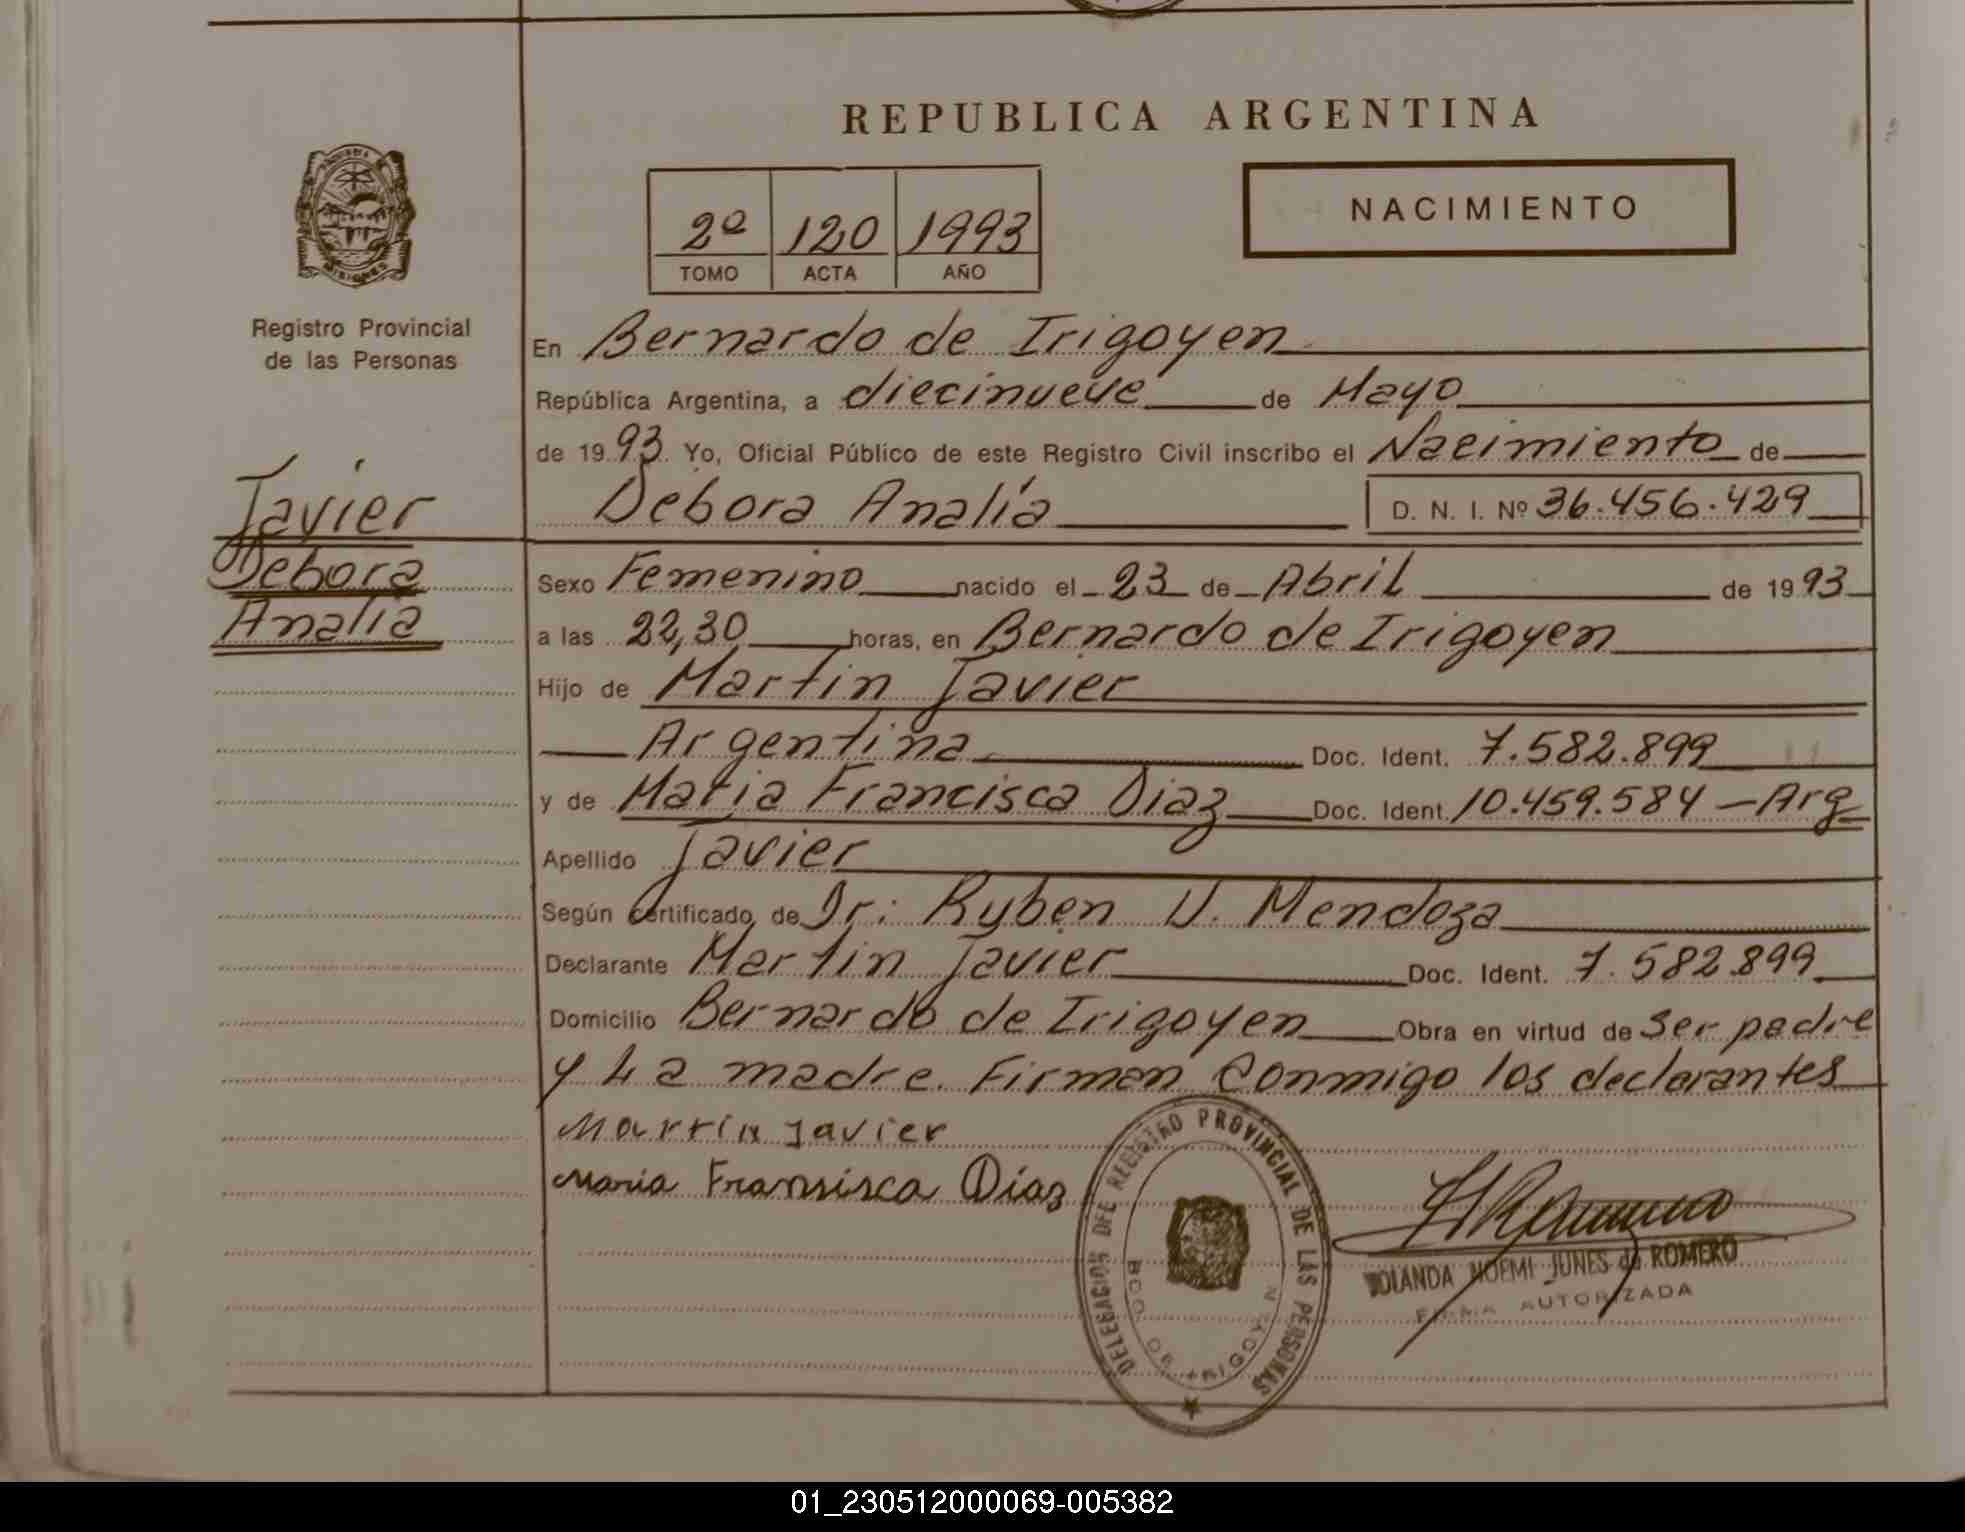 REPUBLICA ARGENTINA
2º 120 1993
TOMO ACTA AÑO
NACIMIENTO
MISIONES
Registro Provincial
de las Personas
Javier
Debora
Analía
En Bernardo de Irigoyen
República Argentina, a diecinueve de Mayo
de 1993. Yo, Oficial Público de este Registro Civil inscribo el Nacimiento de
Debora Analía D. N. I. Nº 36.456.429
Sexo Femenino nacido el 23 de Abril de 1993
a las 22,30 horas, en Bernardo de Irigoyen
Hijo de Martin Javier
Argentina Doc. Ident. 7.582.899
y de Maria Francisca Diaz Doc. Ident. 10.459.584 - Arg
Apellido Javier
Según certificado de Dr: Ruben V. Mendoza
Declarante Martin Javier Doc. Ident. 7.582.899
Domicilio Bernardo de Irigoyen Obra en virtud de ser padre
y La madre. Firman Conmigo los declarantes
Martin Javier
Maria Fransisca Diaz
DELEGACION DEL REGISTRO PROVINCIAL DE LAS PERSONAS
BDO. DE IRIGOYEN
YOLANDA NOEMI JUNES de ROMERO
FIRMA AUTORIZADA
01_230512000069-005382